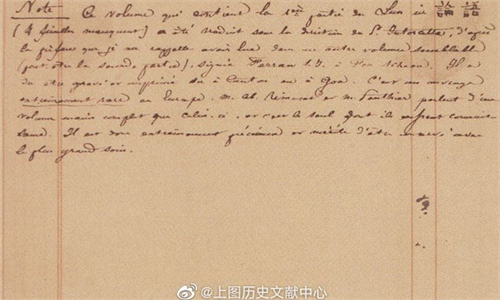 Note Ce volume qui contient la 1ère partie du Lun iu
(4 feuilles manquent) a été traduit sous la direction du P. Intorcetta, d'après
la préface que j'ai vue dans un autre volume semblable
(peut-être la seconde partie), signée Ferran S.J. à
du être gravé or imprimé soit à Canton ou à Goa. C'est un ouvrage
extrêmement rare en Europe. M. Ab. Rémusat or M. Pauthier parlent d'un
volume moins complet que celui-ci, or c'est le seul dont ils
Il est donc extrêmement précieux or mérite d'être conservé avec
le plus grand soin.
?
@上图历史文献中心